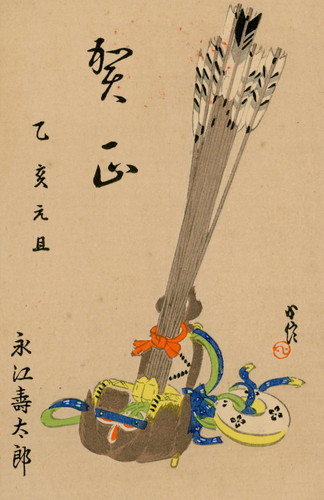 賀正
乙亥元旦
永江壽太郎